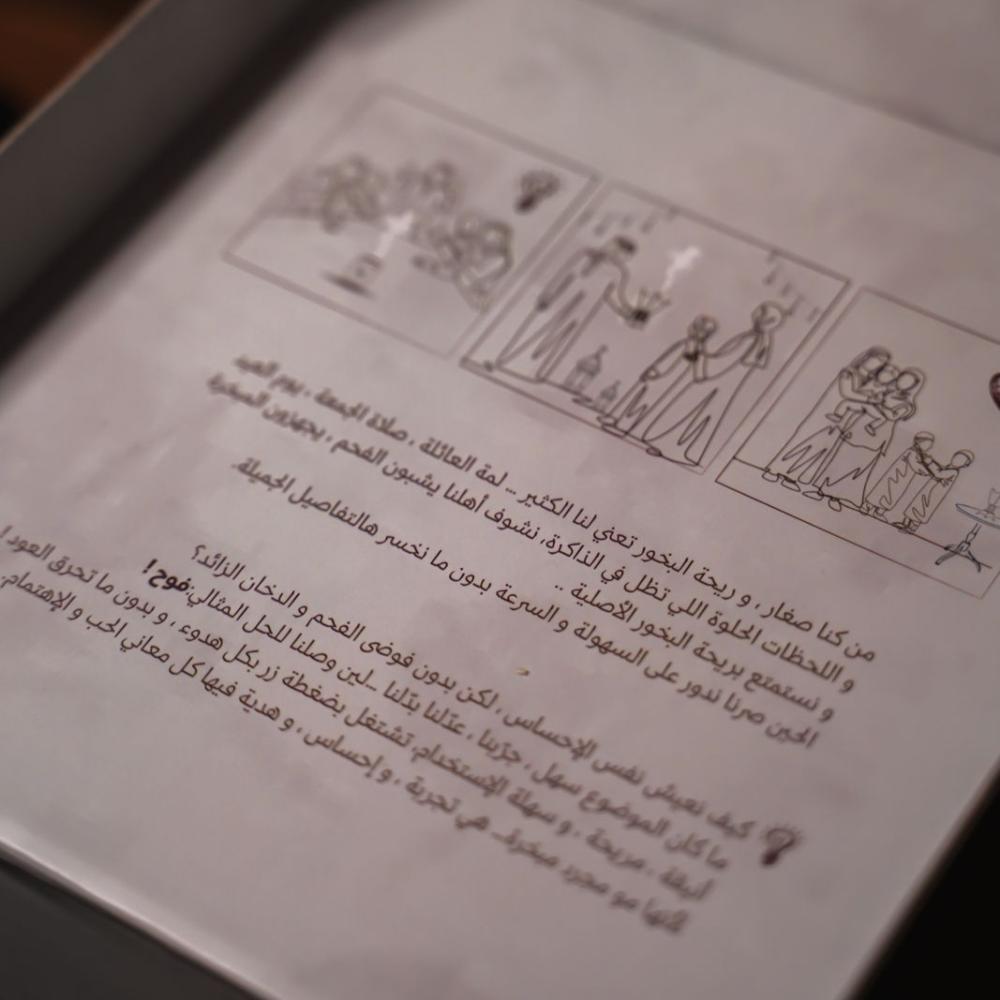 من كنا صغار ، و ريحة البخور تعني لنا الكثير .. لمة العائلة ، صلاة الجمعة ، يوم العيد
و اللحظات الحلوة اللي تظل في الذاكرة، نشوف أهلنا يشبون الفحم ، يجهزون المبخرة
و نستمتع بريحة البخور الأصلية ..
الحين صرنا ندور على السهولة و السرعة بدون ما نخسر هالتفاصيل الجميلة.
كيف نعيش نفس الإحساس ، لكن بدون فوضى الفحم و الدخان الزائد؟
ما كان الموضوع سهل ، جرّبنا ، عدّلنا بدّلنا ..لين وصلنا للحل المثالي:فوح !
أنيقة ، مريحة ، و سهلة الإستخدام، تشتغل بضغطة زر بكل هدوء ، و بدون ما تحرق العود !
لأنها مو مجرد مبخرة.. هي تجربة ، و إحساس ، و هدية فيها كل معاني الحب و الإهتمام.